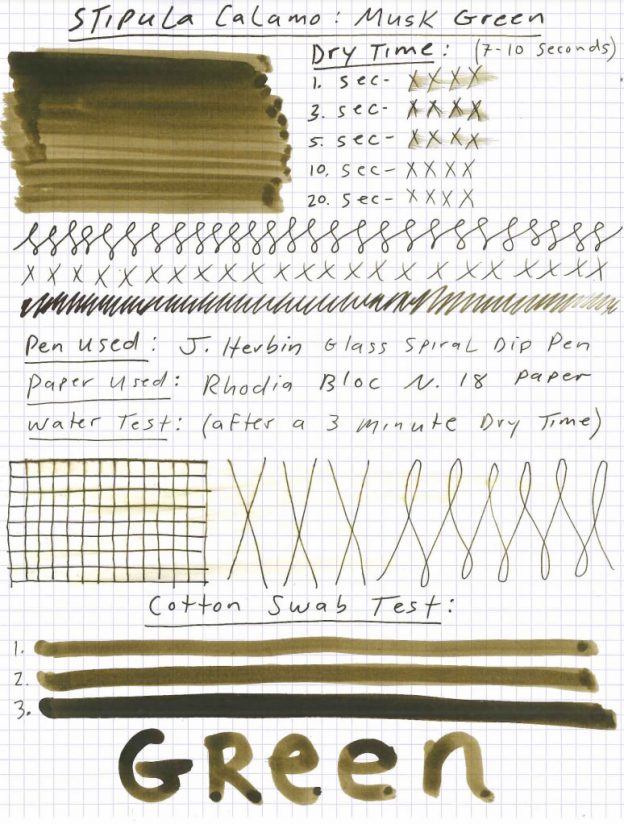 Stipula Calamo: Musk Green
Dry Time: (7-10 seconds)
1. sec- x x x x
3. sec- x x x x
5. sec- x x x x
10. sec- x x x x
20. sec- x x x x
x x x x x x x x x x x x x x x x x x x x x x x x
Pen Used: J. Herbin Glass Spiral Dip Pen
Paper Used: Rhodia Bloc N. 18 Paper
Water Test: (after a 3 minute Dry Time)
Cotton Swab Test:
1.
2.
3.
Green